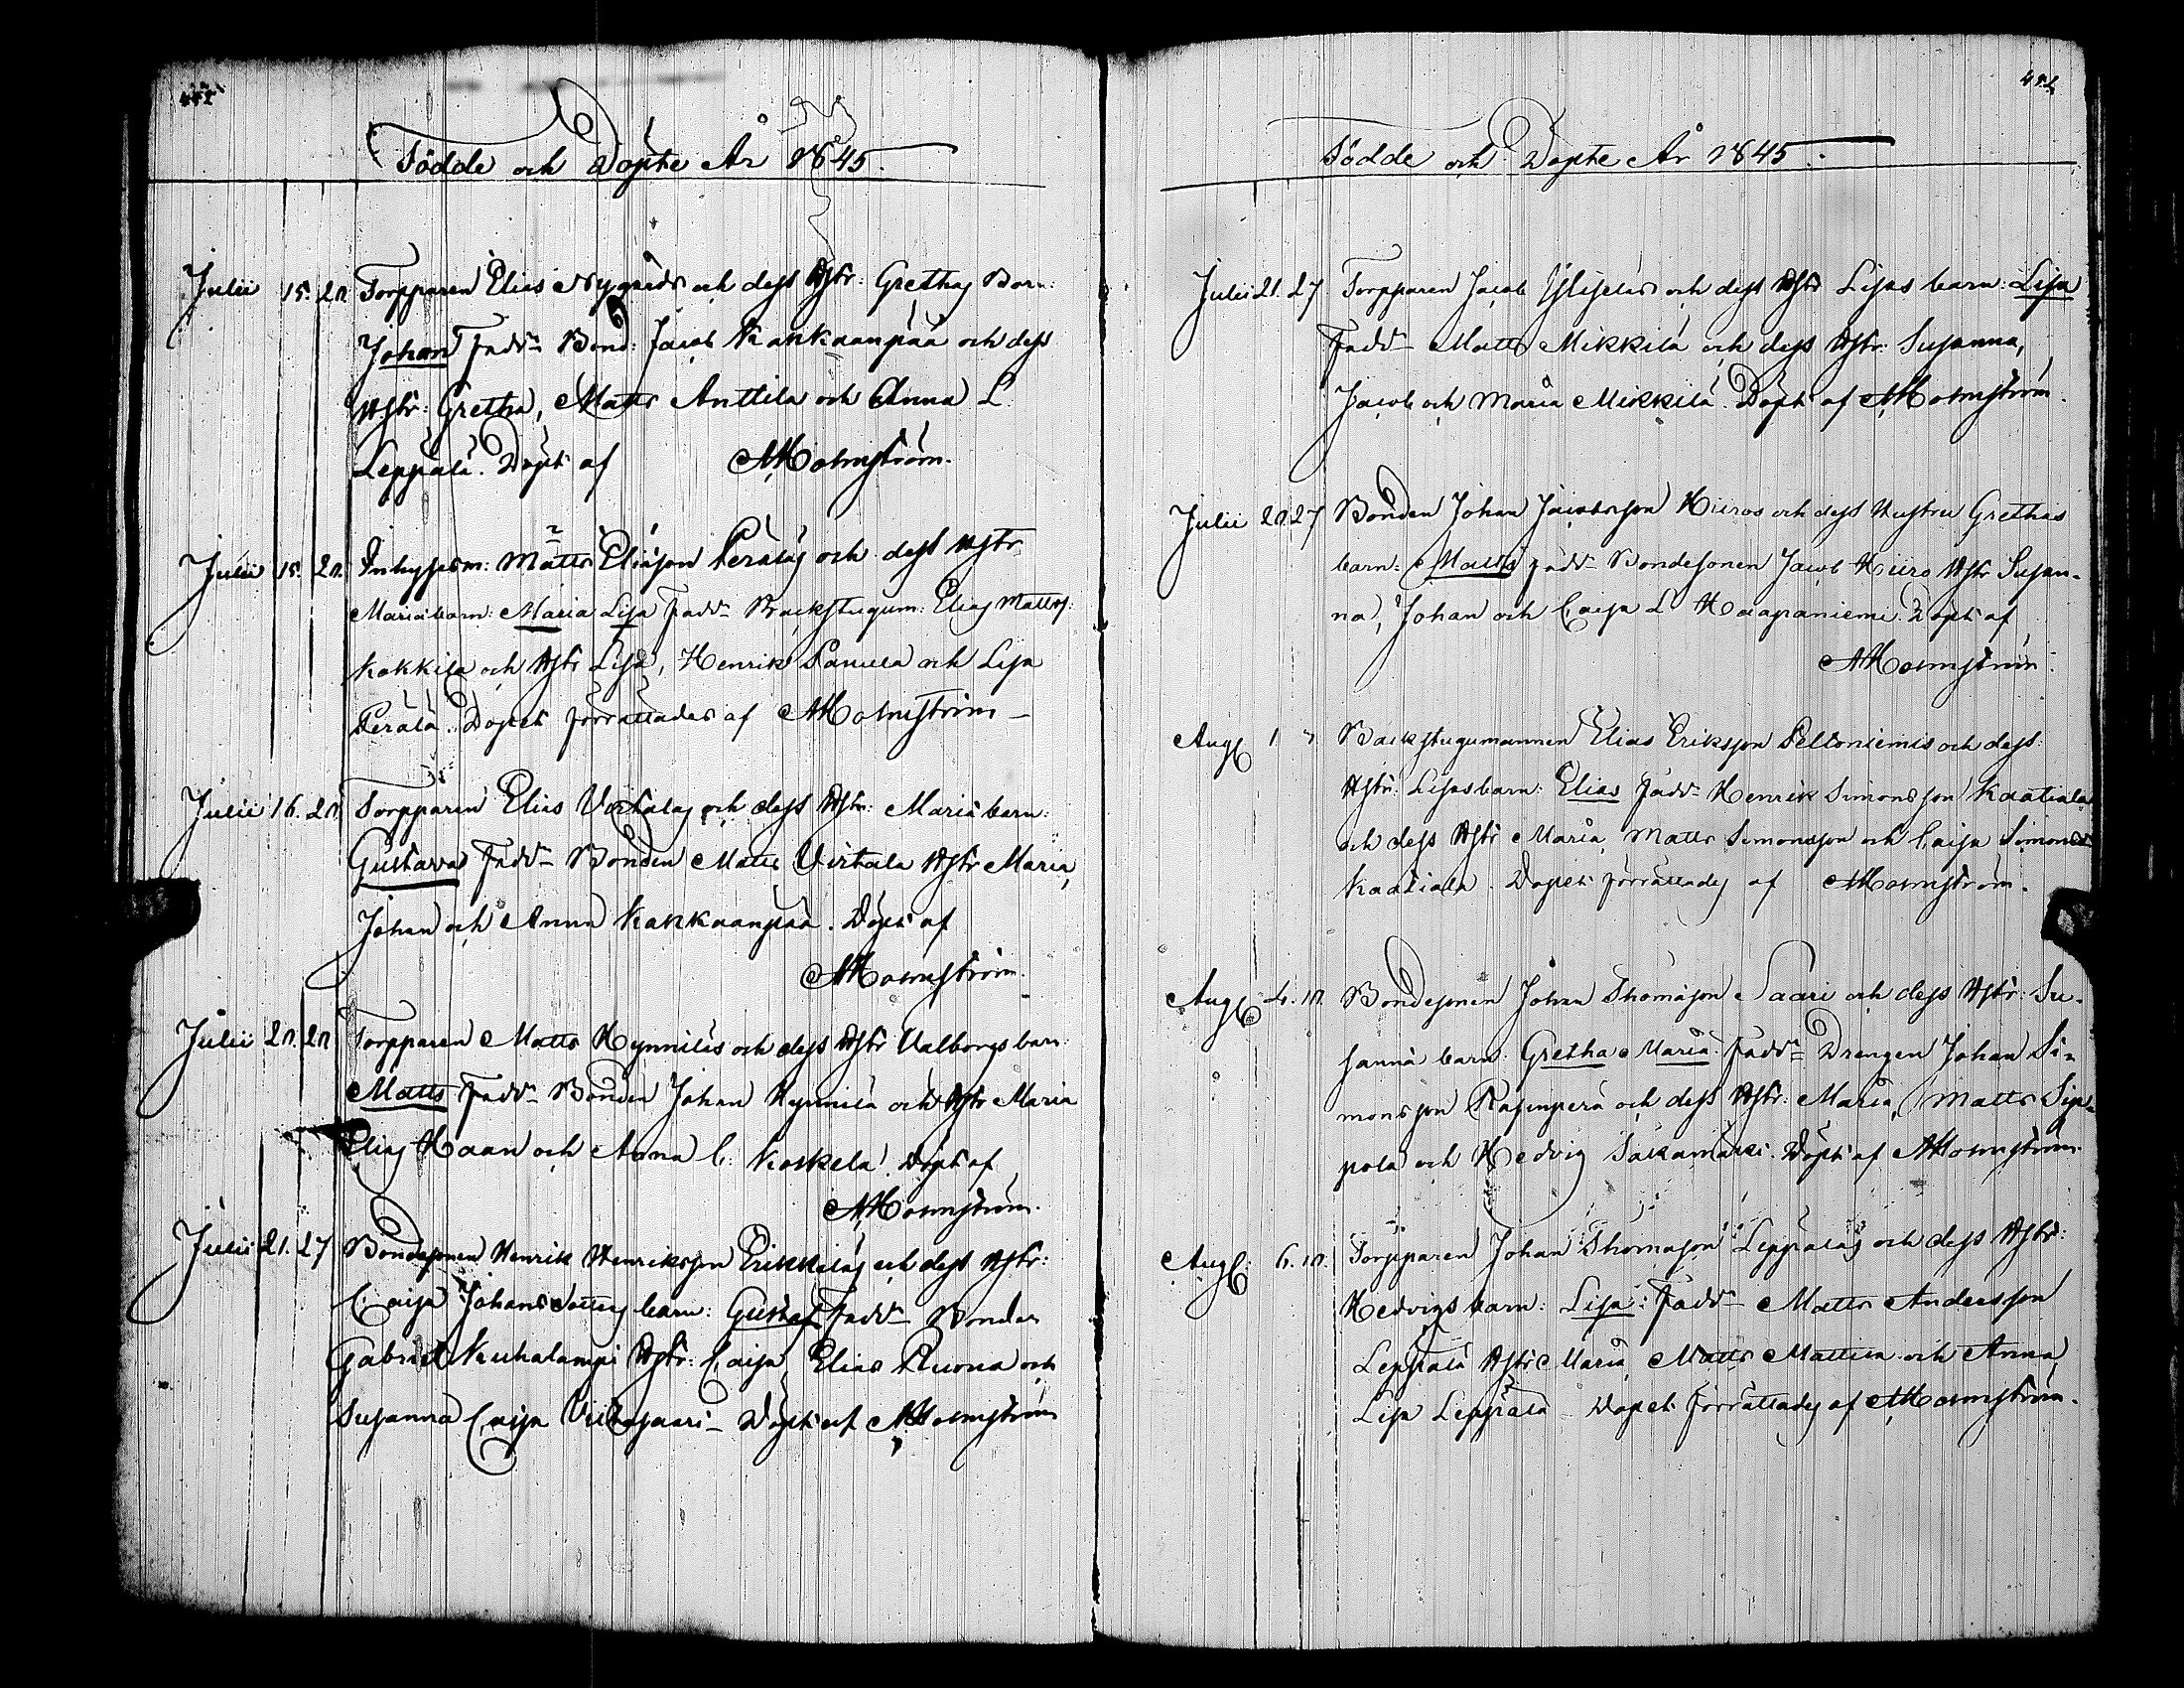 Födde och Döpte År 1845.
Julii 15. 20. Torpparen Elias Nygårds och dess Hstr: Grethas Barn:
Johan Fadd. Bond: Jacob Kankaanpää och dess
Hstr: Gretha, Matts Anttila och Anna L.
Leppälä. Döpt af AHolmström.
Julii 15. 20. Inhysesm: Matts Eliasson Peräläs och dess Hstr
Mariæ barn: Maria Lisa Fadd. Backstugum: Elias Mattss:
Kokkila och Hstr Lisa, Henrik Panula och Lisa
Perälä. Dopet förrättades af AHolmström
Julii 16. 20. Torpparen Elias Virtalas och dess Hstr: Mariæ barn:
Gustava Fadd. Bonden Matts Virtala Hstr Maria,
Johan och Anna Kankaanpää. Döpt af
AHolmström.
Julii 20. 20 Torpparen Matts Hynniläs och dess Hstr Valborgs barn:
Matts Fadd. Bonden Johan Hynnilä och Hstr Maria
Elias Haan och Anna C. Koskela. Döpt af
AHolmström.
Julii 21. 27 Bondesonen Henrik Henriksson Erkkiläs och dess Hstr:
Caisa Johansdotters barn: Gustaf Fadd. Bonden
Gabriel Kuhalampi Hstr: Caisa, Elias Ruona och
Susanna Caisa Viitasaari Döpt af AHolmström
452
Födde och Döpte År 1845.
Julii 21. 27 Torpparen Jacob Ylijeläs och dess Hstr Lisas barn: Lisa
Fadd. Matts Mikkilä och dess Hstr: Susanna,
Jacob och Maria Mikkilä. Döpt af AHolmström.
Julii 20. 27 Bonden Johan Jacobsson Hiiros och dess Hustru Grethas
barn: Matts Fadd. Bondesonen Jacob Hiiro Hstr Susan-
na, Johan och Caisa L. Haapaniemi. Döpt af
AHolmström.
Aug 1 Backstugumannen Elias Eriksson Peltoniemis och dess
Hstr: Lisas barn: Elias Fadd. Henrik Simonsson Kaatiala
och dess Hstr Maria, Matts Simonsson och Caisa Simonsd
Kaatiala. Dopet förrättades af AHolmström.
Aug 4. 10. Bondesonen Johan Thomasson Saari och dess Hstr: Su-
sannæ barn: Gretha Maria. Fadd. Drengen Johan Si-
monsson Rasinperä och dess Hstr: Maria, Matts Sip-
pola och Hedvig Säkämäki. Döpt af AHolmström.
Aug: 6. 10. Torpparen Johan Thomasson Leppäläs och dess Hstr:
Hedvigs barn: Lisa: Fadd. Matts Andersson
Leppälä Hstr Maria, Matts Mattila och Anna
Lisa Leppälä Dopet förrättades af AHolmström.